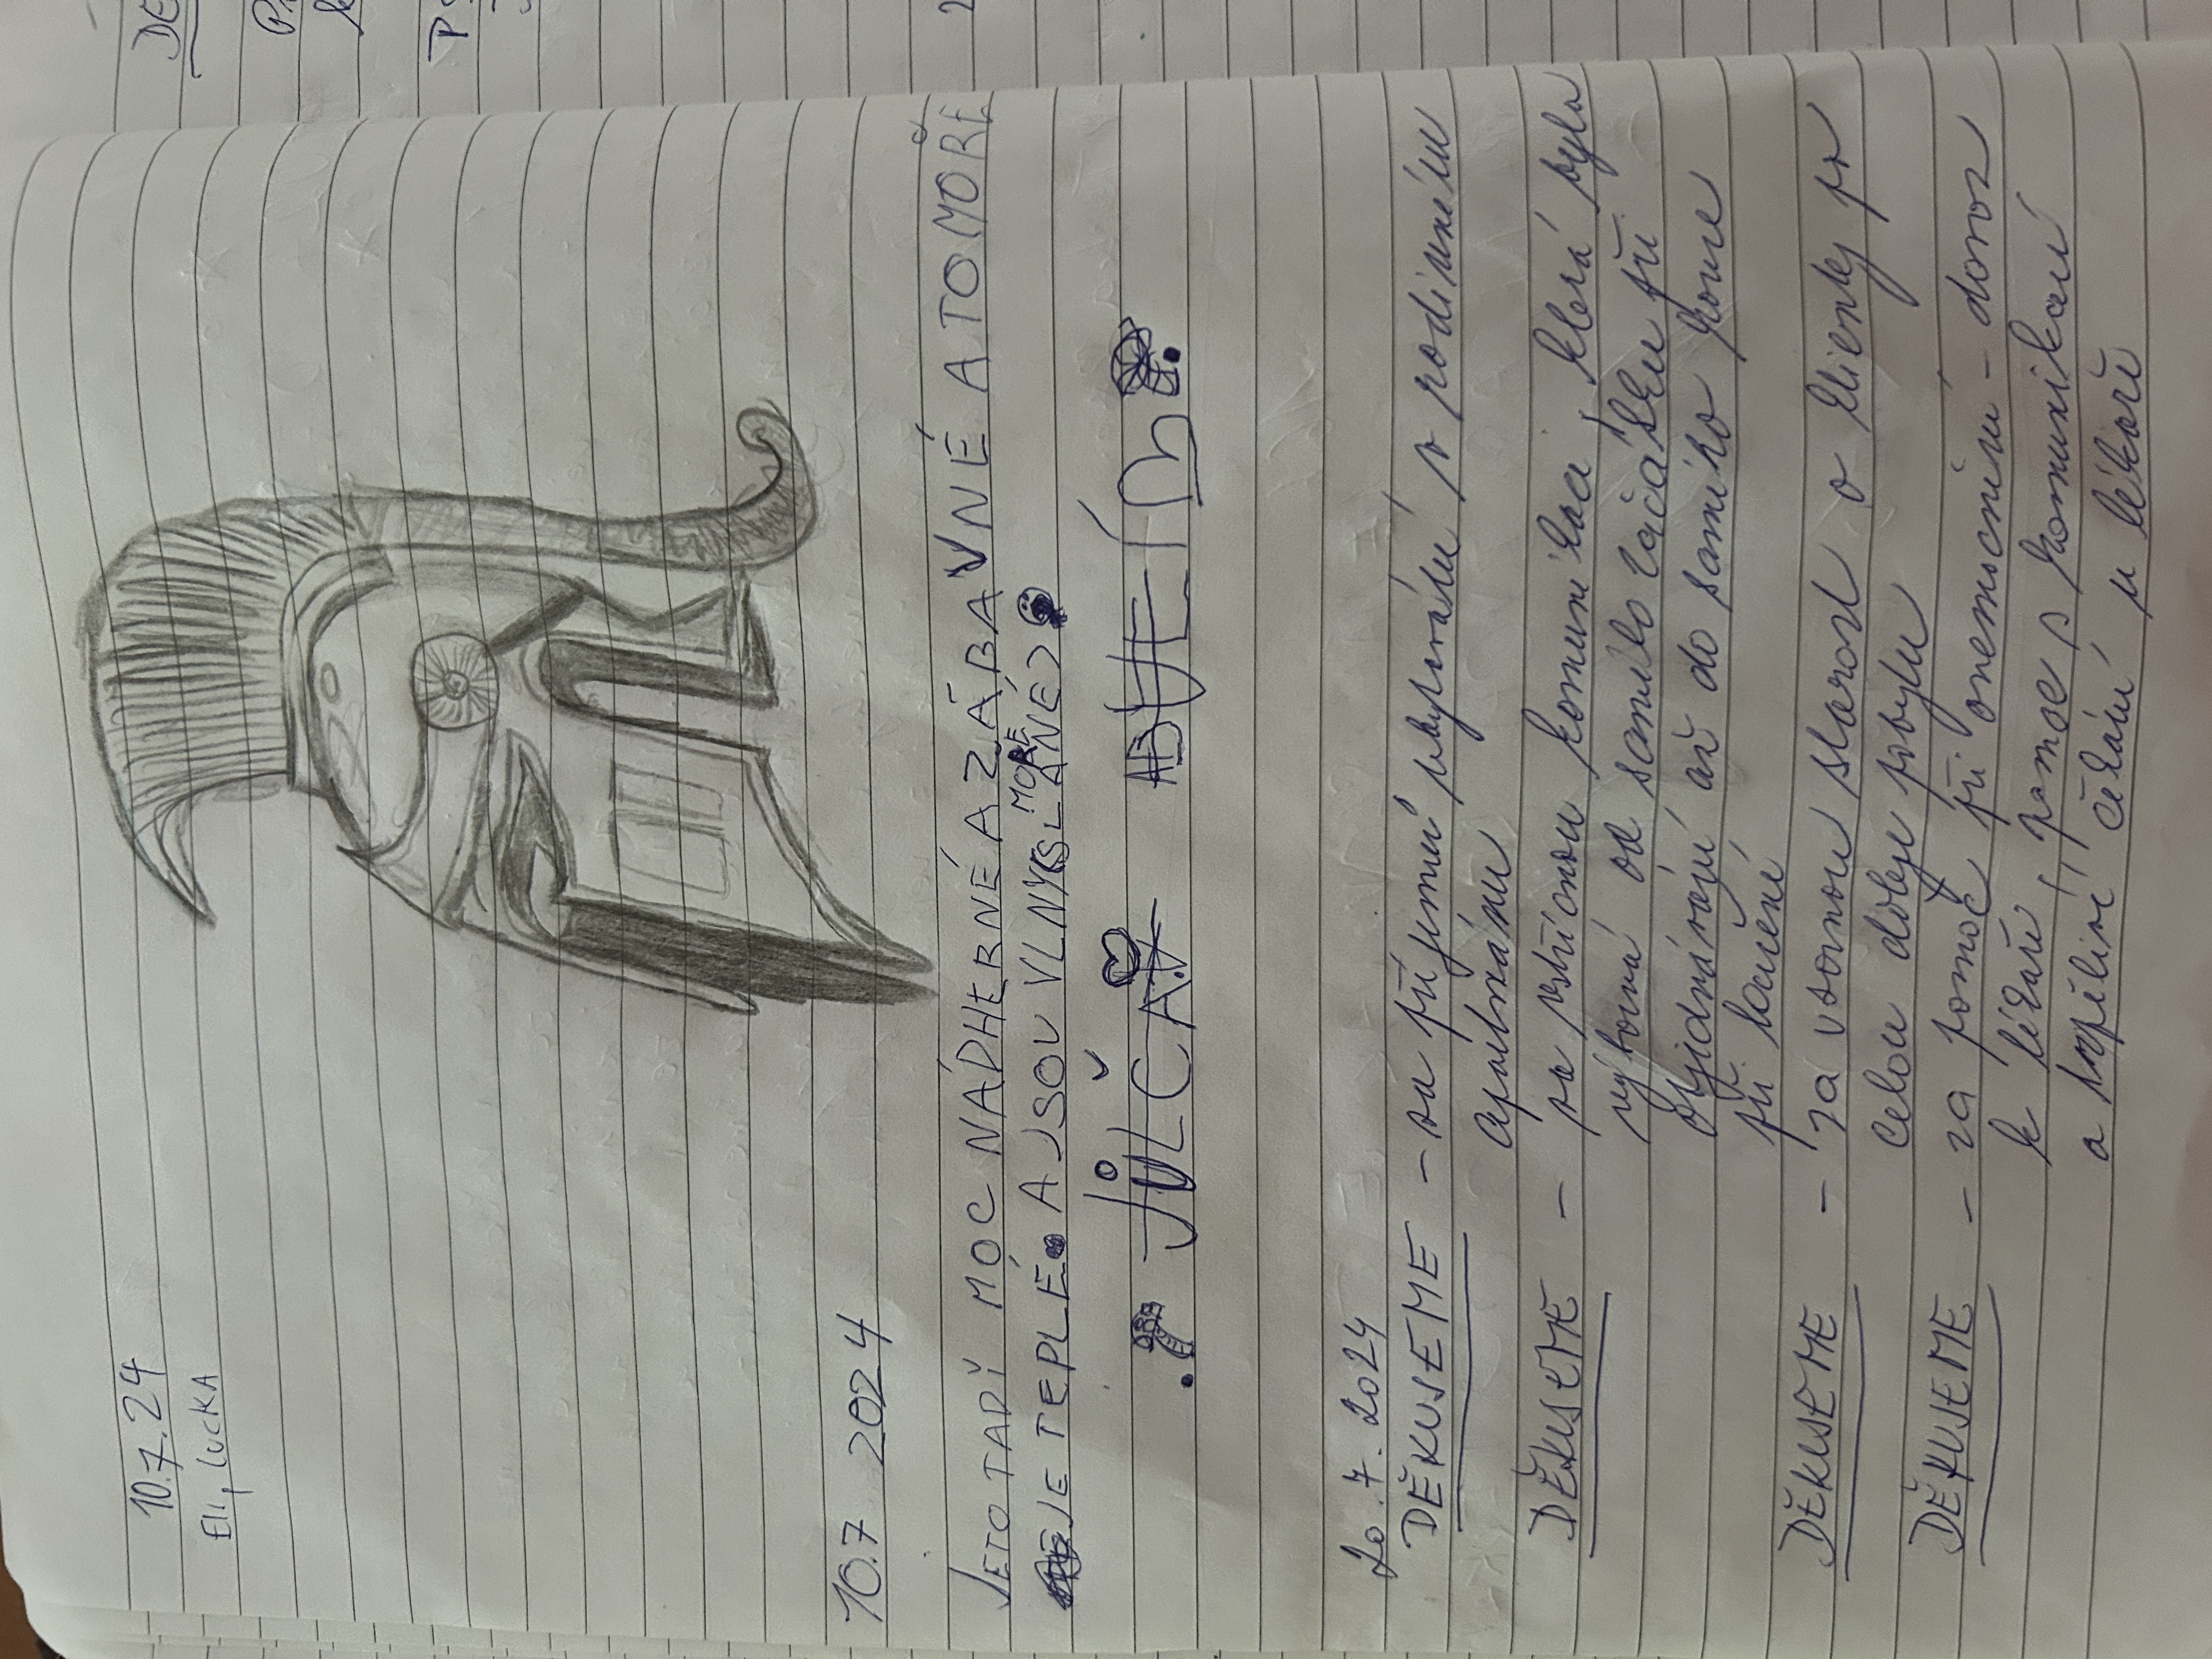 10.7.24
Eli, Lucka
10.7 2024
JE TO TADY MOC NÁDHERNÉ A ZÁBAVNÉ A TO MOŘE
JE TEPLÉ. A JSOU VLNY SLANÉ
MOŘE
JILČA
10.7.2024
DĚKUJEME - za příjemné ubytování v rodinném
apartmánu
DĚKUJEME - za vstřícnou komunikaci, která byla
výborná od samého začátku při
vyjednávání až do samého konce
při loučení
DĚKUJEME - za vzornou starost o klienty po
celou dobu pobytu
DĚKUJEME - za pomoc při onemocnění - dovoz
k lékaři, pomoc s komunikací
a trpělivé čekání u lékaře
DE